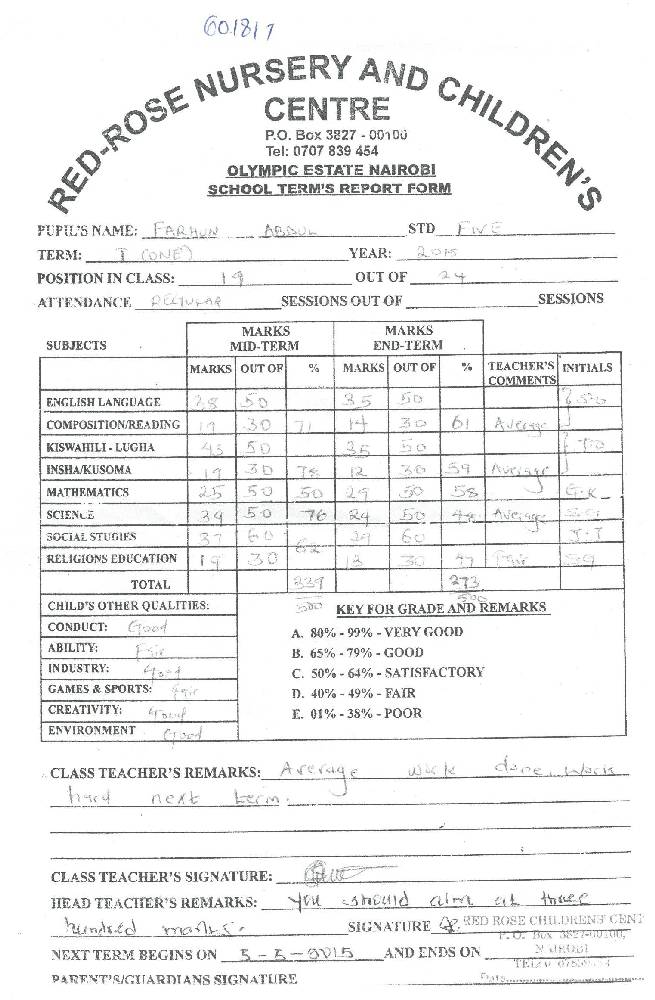 601817
RED-ROSE NURSERY AND CHILDREN'S
CENTRE
P.O. Box 3827 - 00100
Tel: 0707 839 454
OLYMPIC ESTATE NAIROBI
SCHOOL TERM'S REPORT FORM
PUPIL'S NAME: FARHUN ABDUL STD FIVE
TERM: I (ONE) YEAR: 2015
POSITION IN CLASS: 19 OUT OF 24
ATTENDANCE REGULAR SESSIONS OUT OF SESSIONS
SUBJECTS MARKS MID-TERM MARKS END-TERM
MARKS OUT OF % MARKS OUT OF % TEACHER'S COMMENTS INITIALS
ENGLISH LANGUAGE 38 50 35 50
COMPOSITION/READING 19 30 71 14 30 61 Average
KISWAHILI - LUGHA 43 50 35 50
INSHA/KUSOMA 19 30 78 12 30 59 Average
MATHEMATICS 25 50 50 29 50 58 G.K
SCIENCE 39 50 76 24 50 48 Average
SOCIAL STUDIES 37 60 29 60 J.J
RELIGIONS EDUCATION 19 30 62 13 30 47 Fair
TOTAL 339 273
500 500
CHILD'S OTHER QUALITIES: KEY FOR GRADE AND REMARKS
CONDUCT: Good
A. 80% - 99% - VERY GOOD
ABILITY: Fair
B. 65% - 79% - GOOD
INDUSTRY: Good
C. 50% - 64% - SATISFACTORY
GAMES & SPORTS: Fair
D. 40% - 49% - FAIR
CREATIVITY: Good
E. 01% - 38% - POOR
ENVIRONMENT Good
CLASS TEACHER'S REMARKS: Average work done. Work
hard next term.
CLASS TEACHER'S SIGNATURE:
HEAD TEACHER'S REMARKS: You should aim at three
hundred marks. SIGNATURE RED ROSE CHILDRENS CENT
P.O. Box 3827-00100,
NEXT TERM BEGINS ON 5-5-2015 AND ENDS ON NAIROBI
PARENT'S/GUARDIANS SIGNATURE